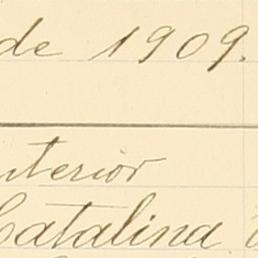 de 1909.
nterior
Catalina